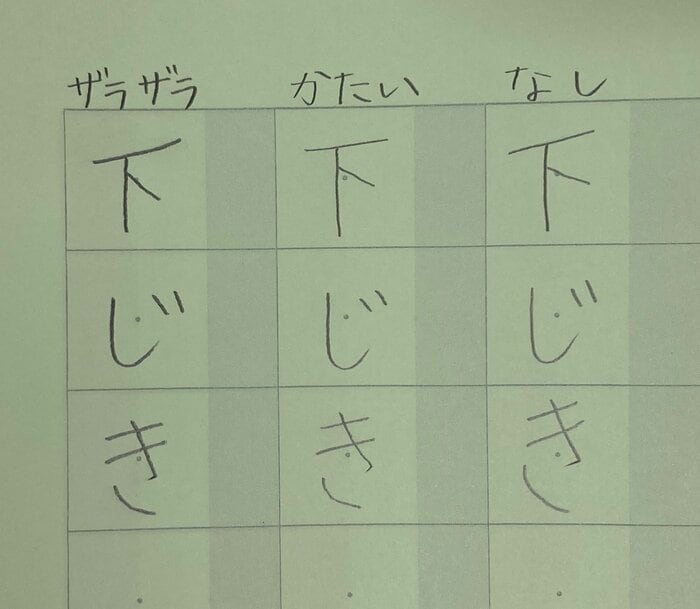 ザラザラ かたい なし
下 下 下
じ じ じ
き き き